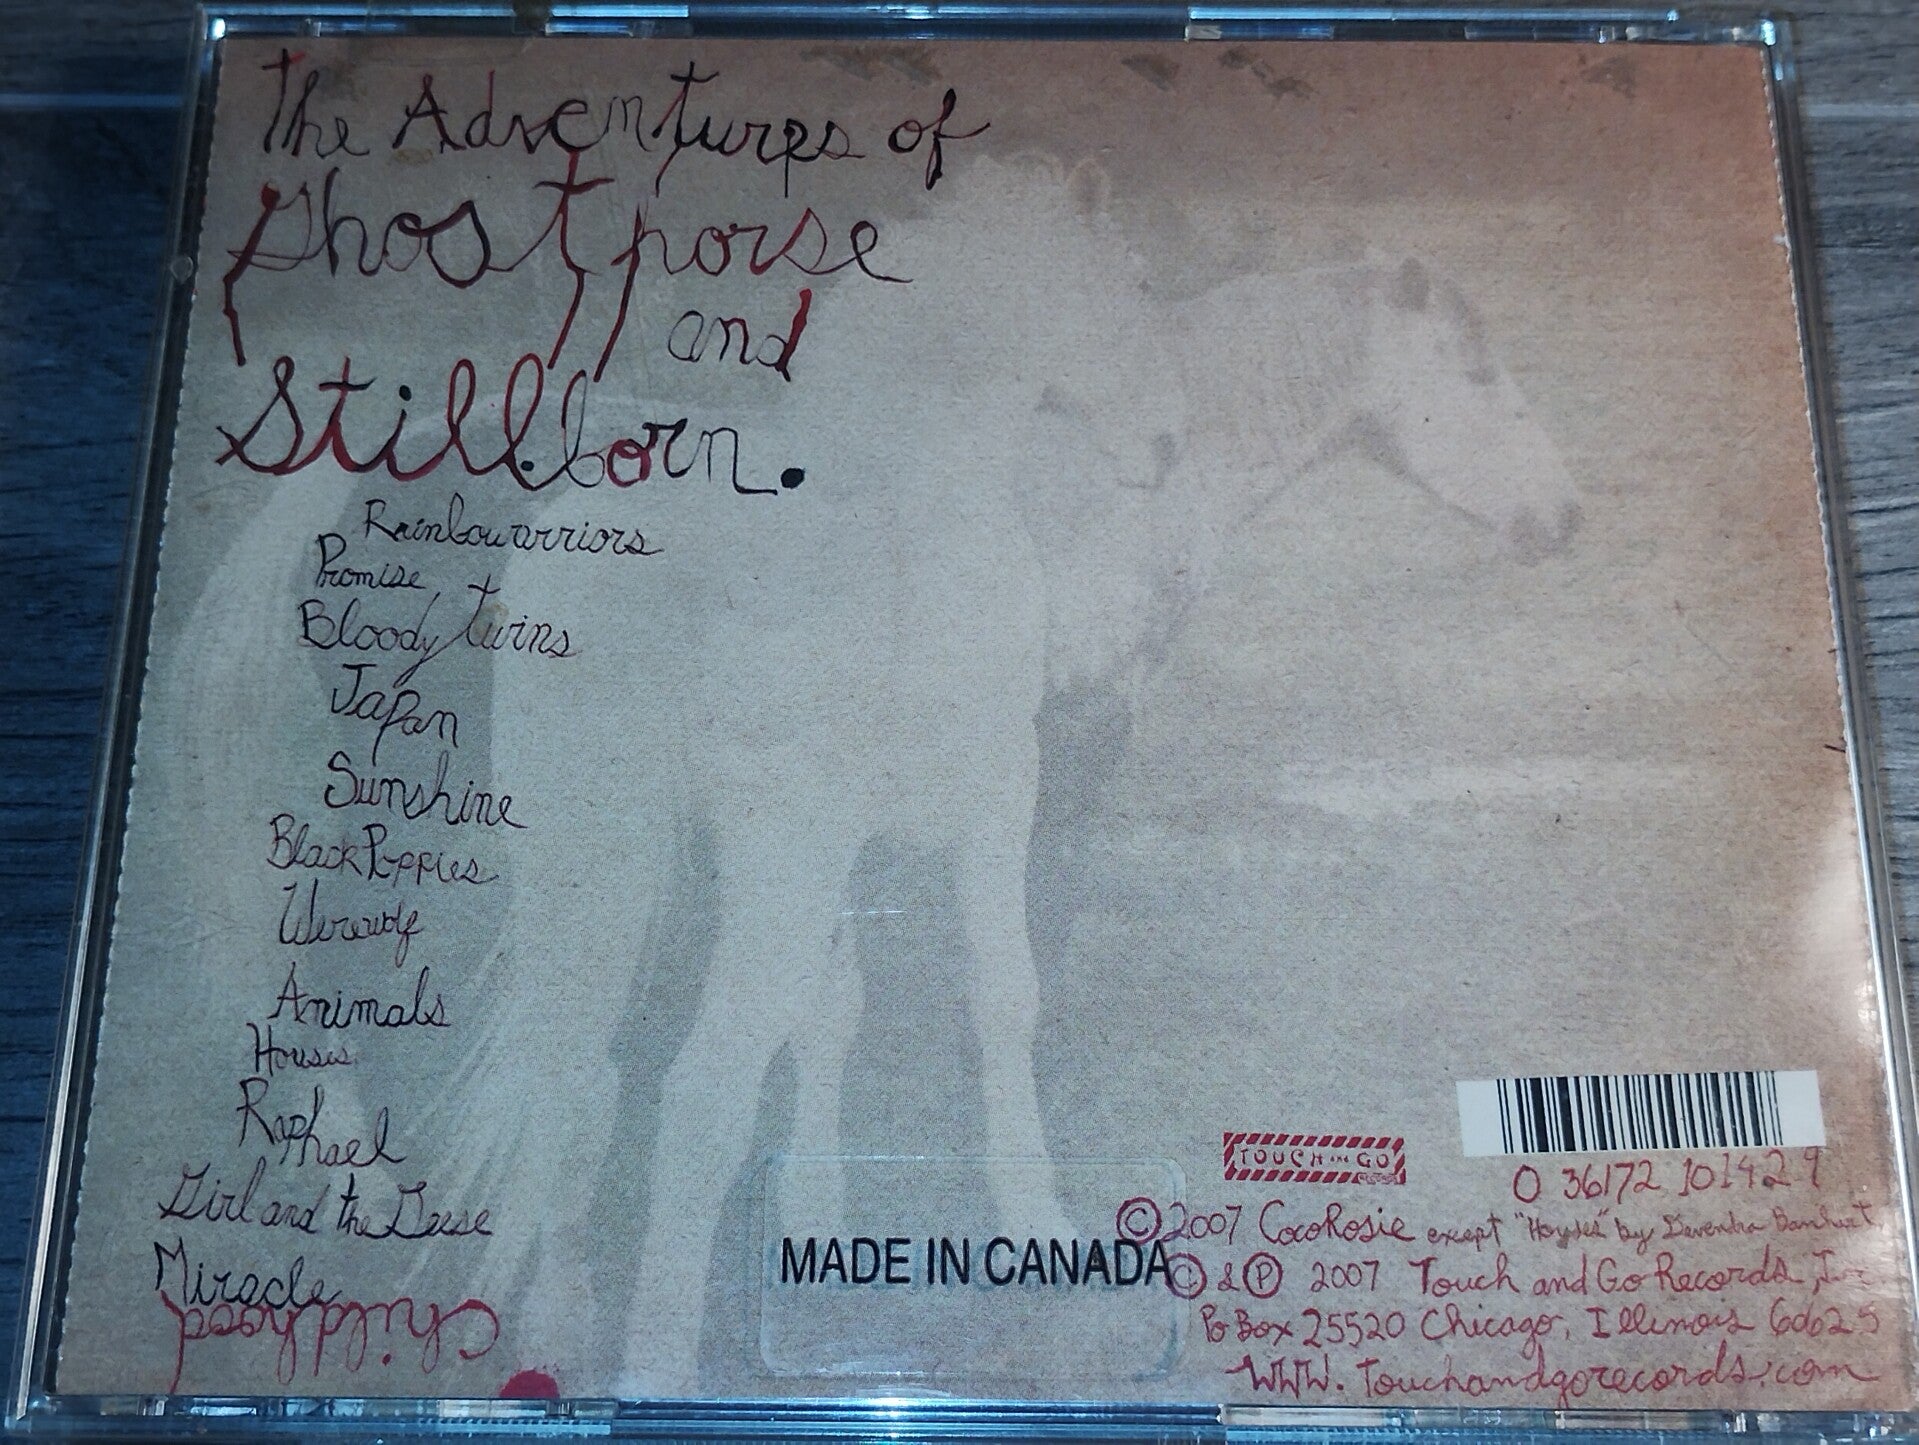 The Adventures of
Ghosthorse
and
Stillborn.
Rainbowarriors
Promise
Bloody twins
Japan
Sunshine
Black Poppies
Werewolf
Animals
Houses
Raphael
Girl and the Geese
Miracle
childhood
TOUCH AND GO
0 36172 10142 9
© 2007 CocoRosie except "Houses" by Devendra Banhart
MADE IN CANADA
© & ℗ 2007 Touch and Go Records, Inc
Po Box 25520 Chicago, Illinois 60625
WWW.Touchandgorecords.com